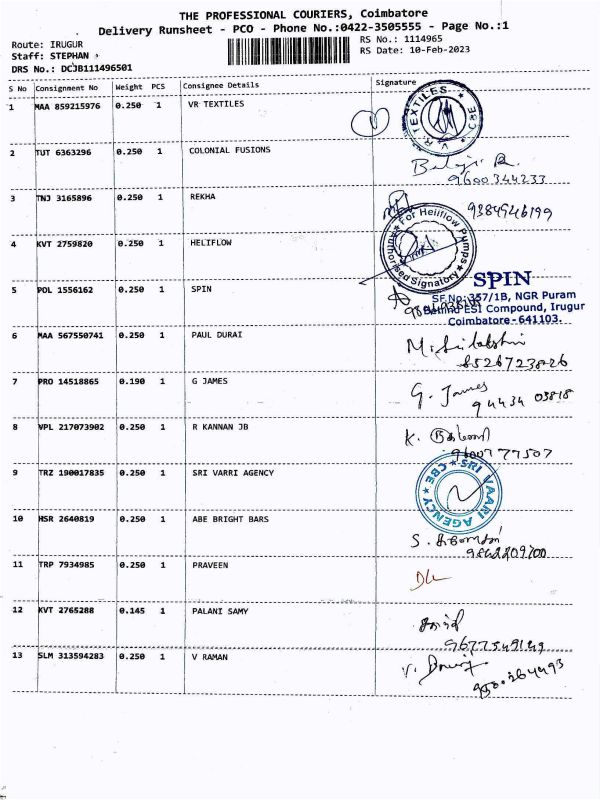 THE PROFESSIONAL COURIERS, Coimbatore
Delivery Runsheet - PCO - Phone No.:0422-3505555 - Page No.:1
Route: IRUGUR
RS No.: 1114965
Staff: STEPHAN
RS Date: 10-Feb-2023
DRS No.: DCJB111496501
S No Consignment No Weight PCS Consignee Details Signature
1 MAA 859215976 0.250 1 VR TEXTILES
V R TEXTILES CBE
2 TUT 6363296 0.250 1 COLONIAL FUSIONS
Balaji R.
9600344233
3 TNJ 3165896 0.250 1 REKHA
9384946199
4 KVT 2759820 0.250 1 HELIFLOW
For Heliflow Pumps
Authorised Signatory
5 POL 1556162 0.250 1 SPIN
SPIN
SF.No:357/1B, NGR Puram
Behind ESI Compound, Irugur
Coimbatore-641103.
6 MAA 567550741 0.250 1 PAUL DURAI
8526723826
7 PRO 14518865 0.190 1 G JAMES
G. James
94434 03818
8 VPL 217073902 0.250 1 R KANNAN JB
K.
9600777507
9 TRZ 190017835 0.250 1 SRI VARRI AGENCY
SRI VAARI AGENCY CBE
10 HSR 2640819 0.250 1 ABE BRIGHT BARS
S.
11 TRP 7934985 0.250 1 PRAVEEN
12 KVT 2765288 0.145 1 PALANI SAMY
9677549149
13 SLM 313594283 0.250 1 V RAMAN
V.